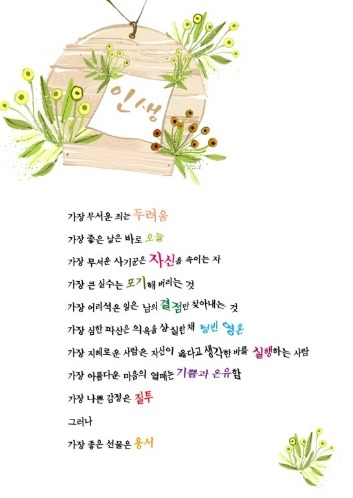 인생
가장 무서운 죄는 두려움
가장 좋은 날은 바로 오늘
가장 무서운 사기꾼은 자신을 속이는 자
가장 큰 실수는 포기해 버리는 것
가장 어리석은 일은 남의 결점만 찾아내는 것
가장 심한 파산은 의욕을 상실한 채 텅빈 영혼
가장 지혜로운 사람은 자신이 옳다고 생각한 바를 실행하는 사람
가장 아름다운 마음의 열매는 기쁨과 온유함
가장 나쁜 감정은 질투
그러나
가장 좋은 선물은 용서